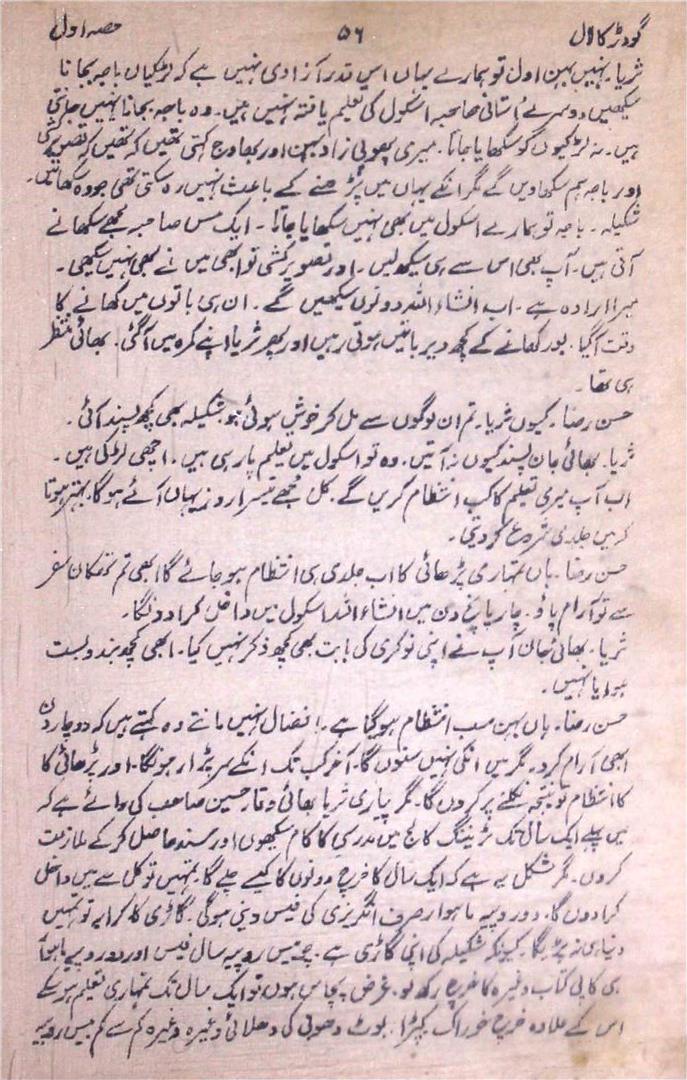 گودڑ کا لال ۵۶ حصہ اول
ثریا۔ نہیں بہن اول تو ہمارے یہاں اس قدر آزادی نہیں ہے کہ لڑکیاں باجہ بجانا
سیکھیں دوسرے اُستانی صاحبہ اسکول کی تعلیم یافتہ نہیں ہیں۔ وہ باجہ بجانا نہیں جانتی
ہیں۔ نہ لڑکیوں کو سکھایا جاتا۔ میری پھوپی زاد بہن اور بھاوج کہتی تھیں کہ تمھیں کچھ تصویر کشی
اور باجہ ہم سکھا دیں گے مگر انکے یہاں میں پڑھنے کے باعث نہیں رہ سکتی تھی جو وہ سکھاتیں۔
شکیلہ۔ باجہ تو ہمارے اسکول میں بھی نہیں سکھایا جاتا۔ ایک مس صاحبہ مجھے سکھانے
آتی ہیں۔ آپ بھی اس سے ہی سیکھ لیں۔ اور تصویر کشی تو ابھی میں نے بھی نہیں سیکھی۔
میرا ارادہ ہے۔ اب انشاء اللہ دونوں سیکھیں گے۔ ان ہی باتوں میں کھانے کا
وقت آگیا۔ بعد کھانے کے کچھ دیر باتیں ہوتی رہیں اور پھر ثریا اپنے کمرہ میں آگئی۔ بھائی منتظر
ہی تھا۔
حسن رضا۔ کیوں ثریا۔ تم ان لوگوں سے مل کر خوش ہوئی ہو۔ شکیلہ بھی کچھ پسند آئی۔
ثریا۔ بھائی جان پسند کیوں نہ آتیں۔ وہ تو اسکول میں تعلیم پا رہی ہیں۔ اچھی لڑکی ہیں۔
اب آپ میری تعلیم کا کب انتظام کریں گے۔ کل مجھے تیسرا روز یہاں آئے ہوگا۔ بہتر ہوتا
کہ میں جلدی شروع کر دیتی۔
حسن رضا۔ ہاں تمہاری پڑھائی کا اب جلدی ہی انتظام ہو جائے گا ابھی تم تکان سفر
سے تو آرام پاؤ۔ چار پانچ دن میں انشاء اللہ اسکول میں داخل کرا دونگا۔
ثریا۔ بھائی جان آپ نے اپنی نوکری کی بابت بھی کچھ ذکر نہیں کیا۔ ابھی کچھ بندوبست
ہوا یا نہیں۔
حسن رضا۔ ہاں بہن سب انتظام ہو گیا ہے۔ افضال نہیں مانتے وہ کہتے ہیں کہ دو چار دن
ابھی آرام کرو۔ مگر میں انکی نہیں سنوں گا۔ آخر کب تک انکے سر پڑا رہونگا۔ اور پڑھائی کا
کا انتظام تو نتیجہ نکلنے پر کروں گا۔ مگر پیاری ثریا بھائی وقار حسین صاحب کی رائے ہے کہ
میں پہلے ایک سال تک ٹریننگ کالج میں مدرسی کا کام سیکھوں اور سند حاصل کر کے ملازمت
کروں۔ مگر مشکل یہ ہے کہ ایک سال کا خرچ دونوں کا کیسے چلے گا۔ تمہیں تو کل سے میں داخل
کرا دوں گا۔ دو روپیہ ماہوار صرف انگریزی کی فیس دینی ہوگی۔ گاڑی کا کرایہ تو تمہیں
دینا ہی نہ پڑیگا۔ کیونکہ شکیلہ کی اپنی گاڑی ہے۔ چوبیس روپیہ سال فیس اور دو روپیہ ماہوار
ہی کاپی کتاب وغیرہ کا خرچ رکھ لو۔ غرض پچاس ہوں تو ایک سال تک تمہاری تعلیم ہو سکے
اس کے علاوہ خرچ خوراک کپڑا۔ بوٹ دھوبی کی دھلائی وغیرہ وغیرہ کم سے کم بیس روپیہ